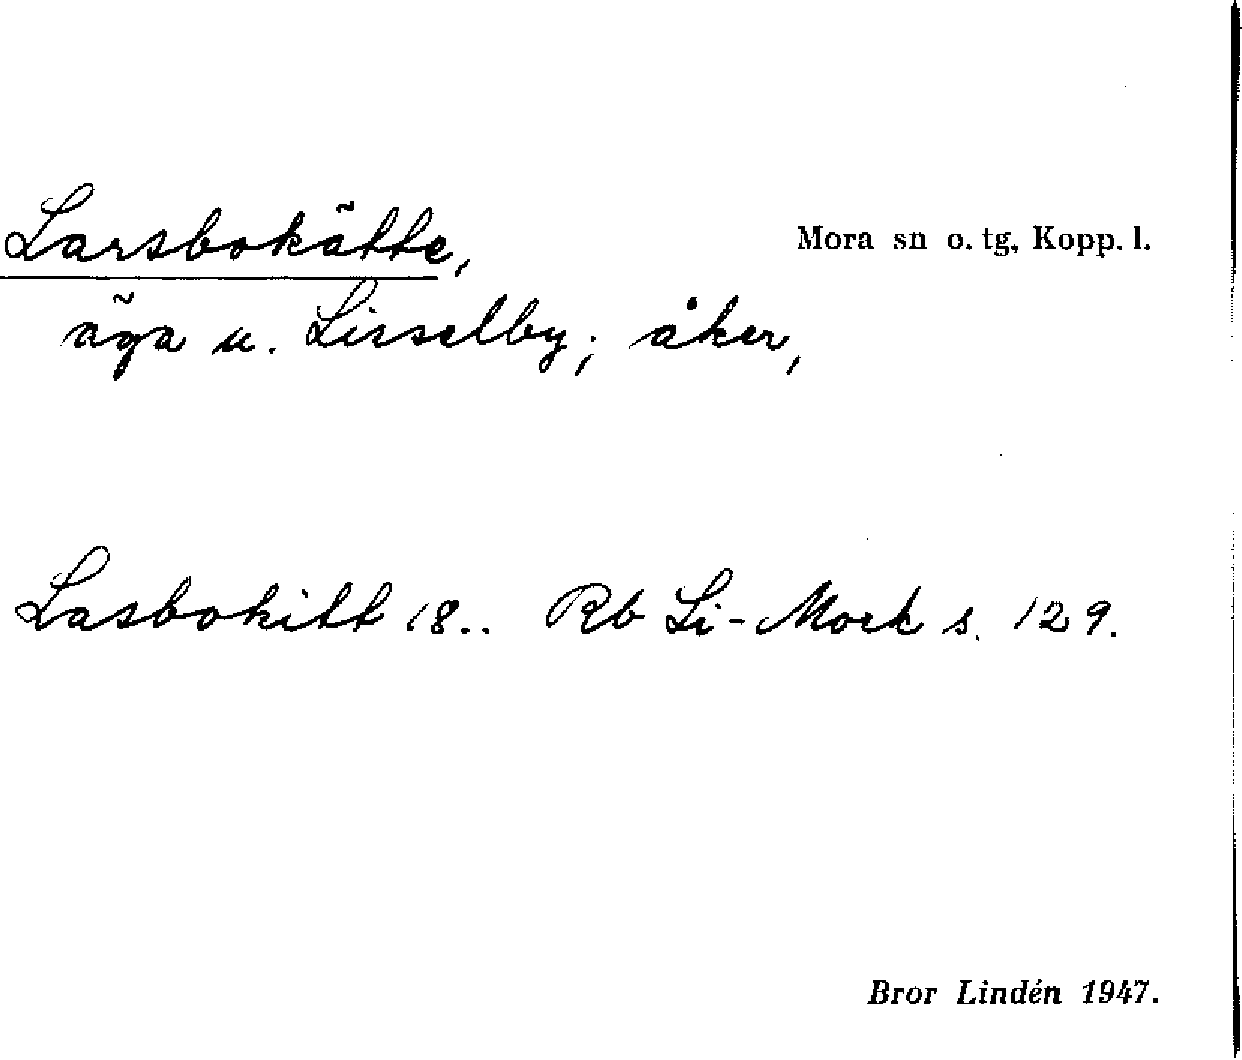 Larsbokätte,
Mora sn o. tg, Kopp. l.
äga u. Lisselby; åker,
Lasbokitt 18.. Rb Li-Mork s. 129.
Bror Lindén 1947.